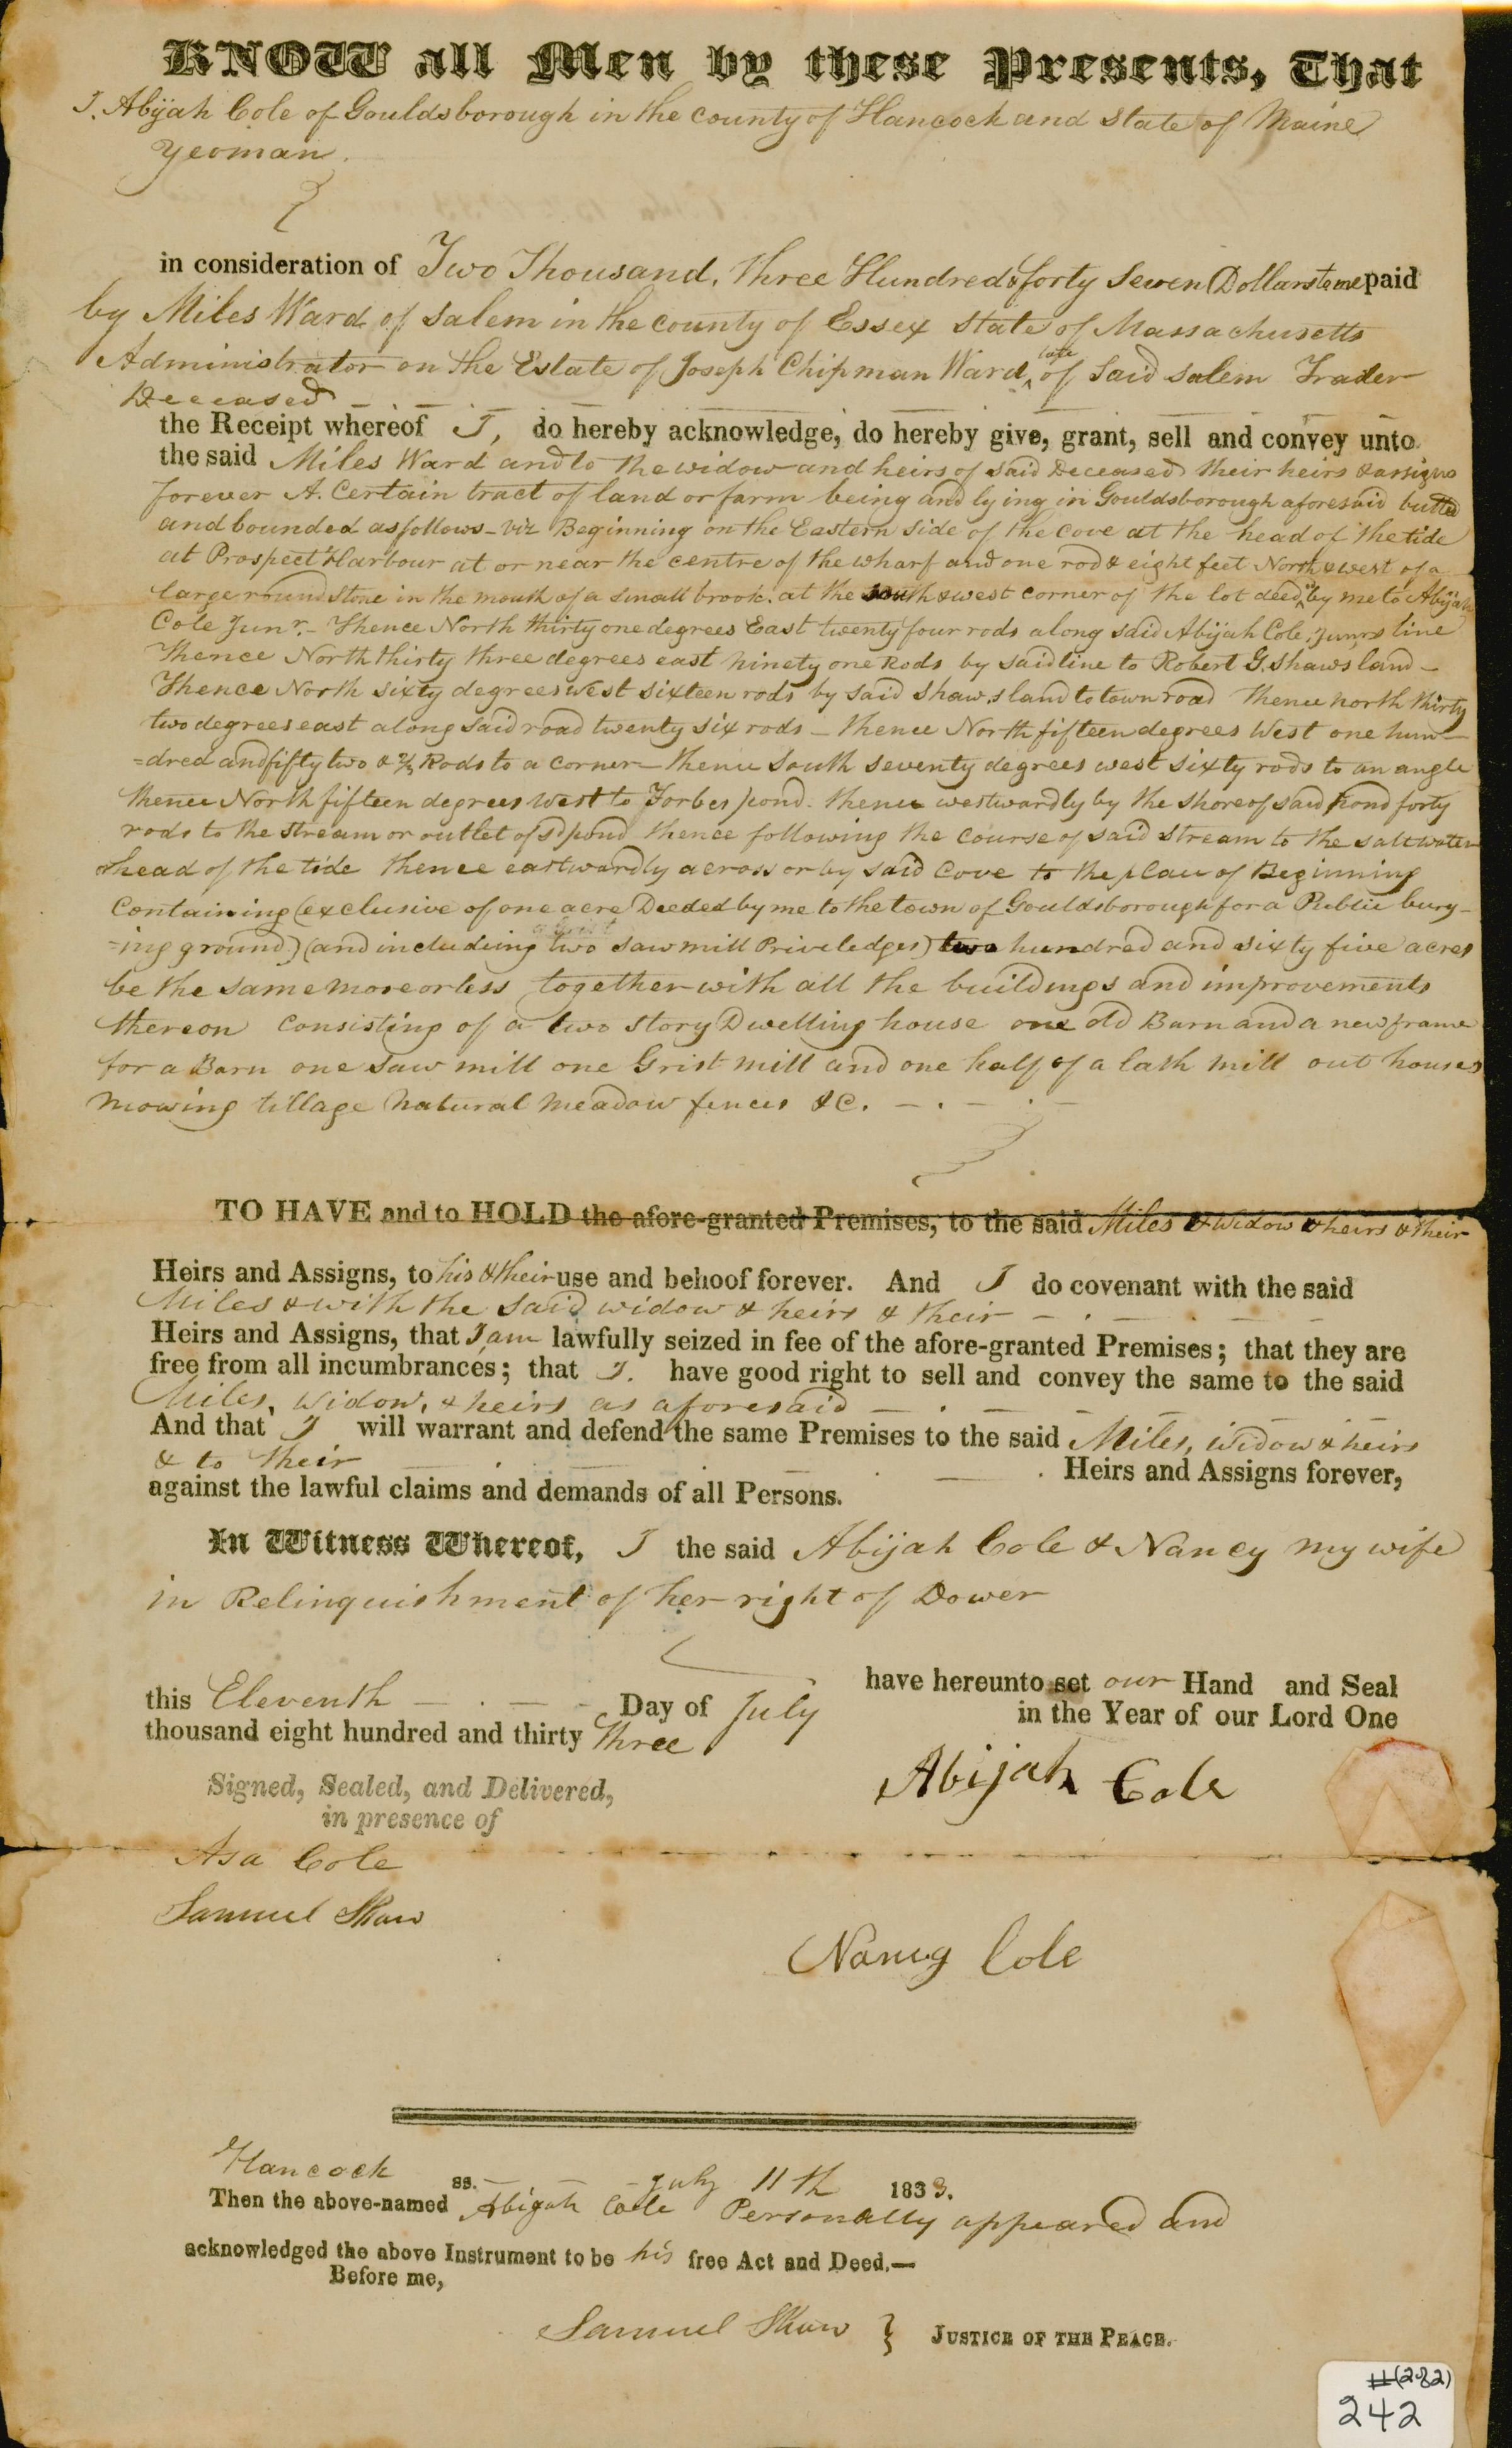 KNOW all Men by these Presents, That
I. Abijah Cole of Gouldsborough in the county of Hancock and state of Maine
Yeoman.
in consideration of Two Thousand, three Hundred & forty Seven Dollars to me paid
by Miles Ward of Salem in the county of Essex state of Massachusetts
Administrator on the Estate of Joseph Chipman Ward, late of Said Salem Trader
Deceased
the Receipt whereof I, do hereby acknowledge, do hereby give, grant, sell and convey unto
the said Miles Ward and to the widow and heirs of said Deceased their heirs & assigns
forever A. Certain tract of land or farm being and lying in Gouldsborough aforesaid butted
and bounded as follows - viz Beginning on the Eastern side of the cove at the head of the tide
at Prospect Harbour at or near the centre of the wharf and one rod & eight feet North & west of a
large round stone in the mouth of a small brook. at the south & west corner of the lot deed,d by me to Abijah
Cole Junr. - Thence North thirty one degrees East twenty four rods along said Abijah Cole, Junrs line
Thence North thirty three degrees east ninety one Rods by said line to Robert G. Shaws land -
Thence North sixty degrees west sixteen rods by said Shaw,s land to town road Thence north thirty
two degrees east along said road twenty six rods - thence North fifteen degrees West one hun-
=dred and fifty two & 2/3 Rods to a corner - thence South seventy degrees west sixty rods to an angle
thence North fifteen degrees west to Forbes pond. thence westwardly by the shore of said pond forty
rods to the stream or outlet of sd pond thence following the course of said stream to the salt water
& head of the tide thence eastwardly across or by said Cove to the place of Beginning
Containing (exclusive of one acre Deeded by me to the town of Gouldsborough for a Public bury-
=ing ground) (and includeing two saw mill Priveledges) two hundred and sixty five acres
be the same more or less together with all the buildings and improvements
thereon consisting of a two story Dwelling house one old Barn and a new frame
for a Barn one saw mill one Grist mill and one half of a lath mill out houses
mowing tillage natural meadow fences &c.
TO HAVE and to HOLD the afore-granted Premises, to the said Miles & widow & heirs & their
Heirs and Assigns, to his & their use and behoof forever. And I do covenant with the said
Miles & with the said widow & heirs & their
Heirs and Assigns, that I am lawfully seized in fee of the afore-granted Premises; that they are
free from all incumbrances; that I. have good right to sell and convey the same to the said
Miles, widow, & heirs as aforesaid
And that I will warrant and defend the same Premises to the said Miles, widow & heirs
& to their Heirs and Assigns forever,
against the lawful claims and demands of all Persons.
In Witness Whereof, I the said Abijah Cole & Nancy my wife
in Relinquishment of her right of Dower
have hereunto set our Hand and Seal
this Eleventh Day of July in the Year of our Lord One
thousand eight hundred and thirty three
Signed, Sealed, and Delivered,
in presence of
Abijah Cole
Asa Cole
Samuel Shaw
Nancy Cole
Hancock ss. July 11th 1833.
Then the above-named Abijah Cole Personally appeared and
acknowledged the above Instrument to be his free Act and Deed.—
Before me,
Samuel Shaw } JUSTICE OF THE PEACE.
#(282)
242